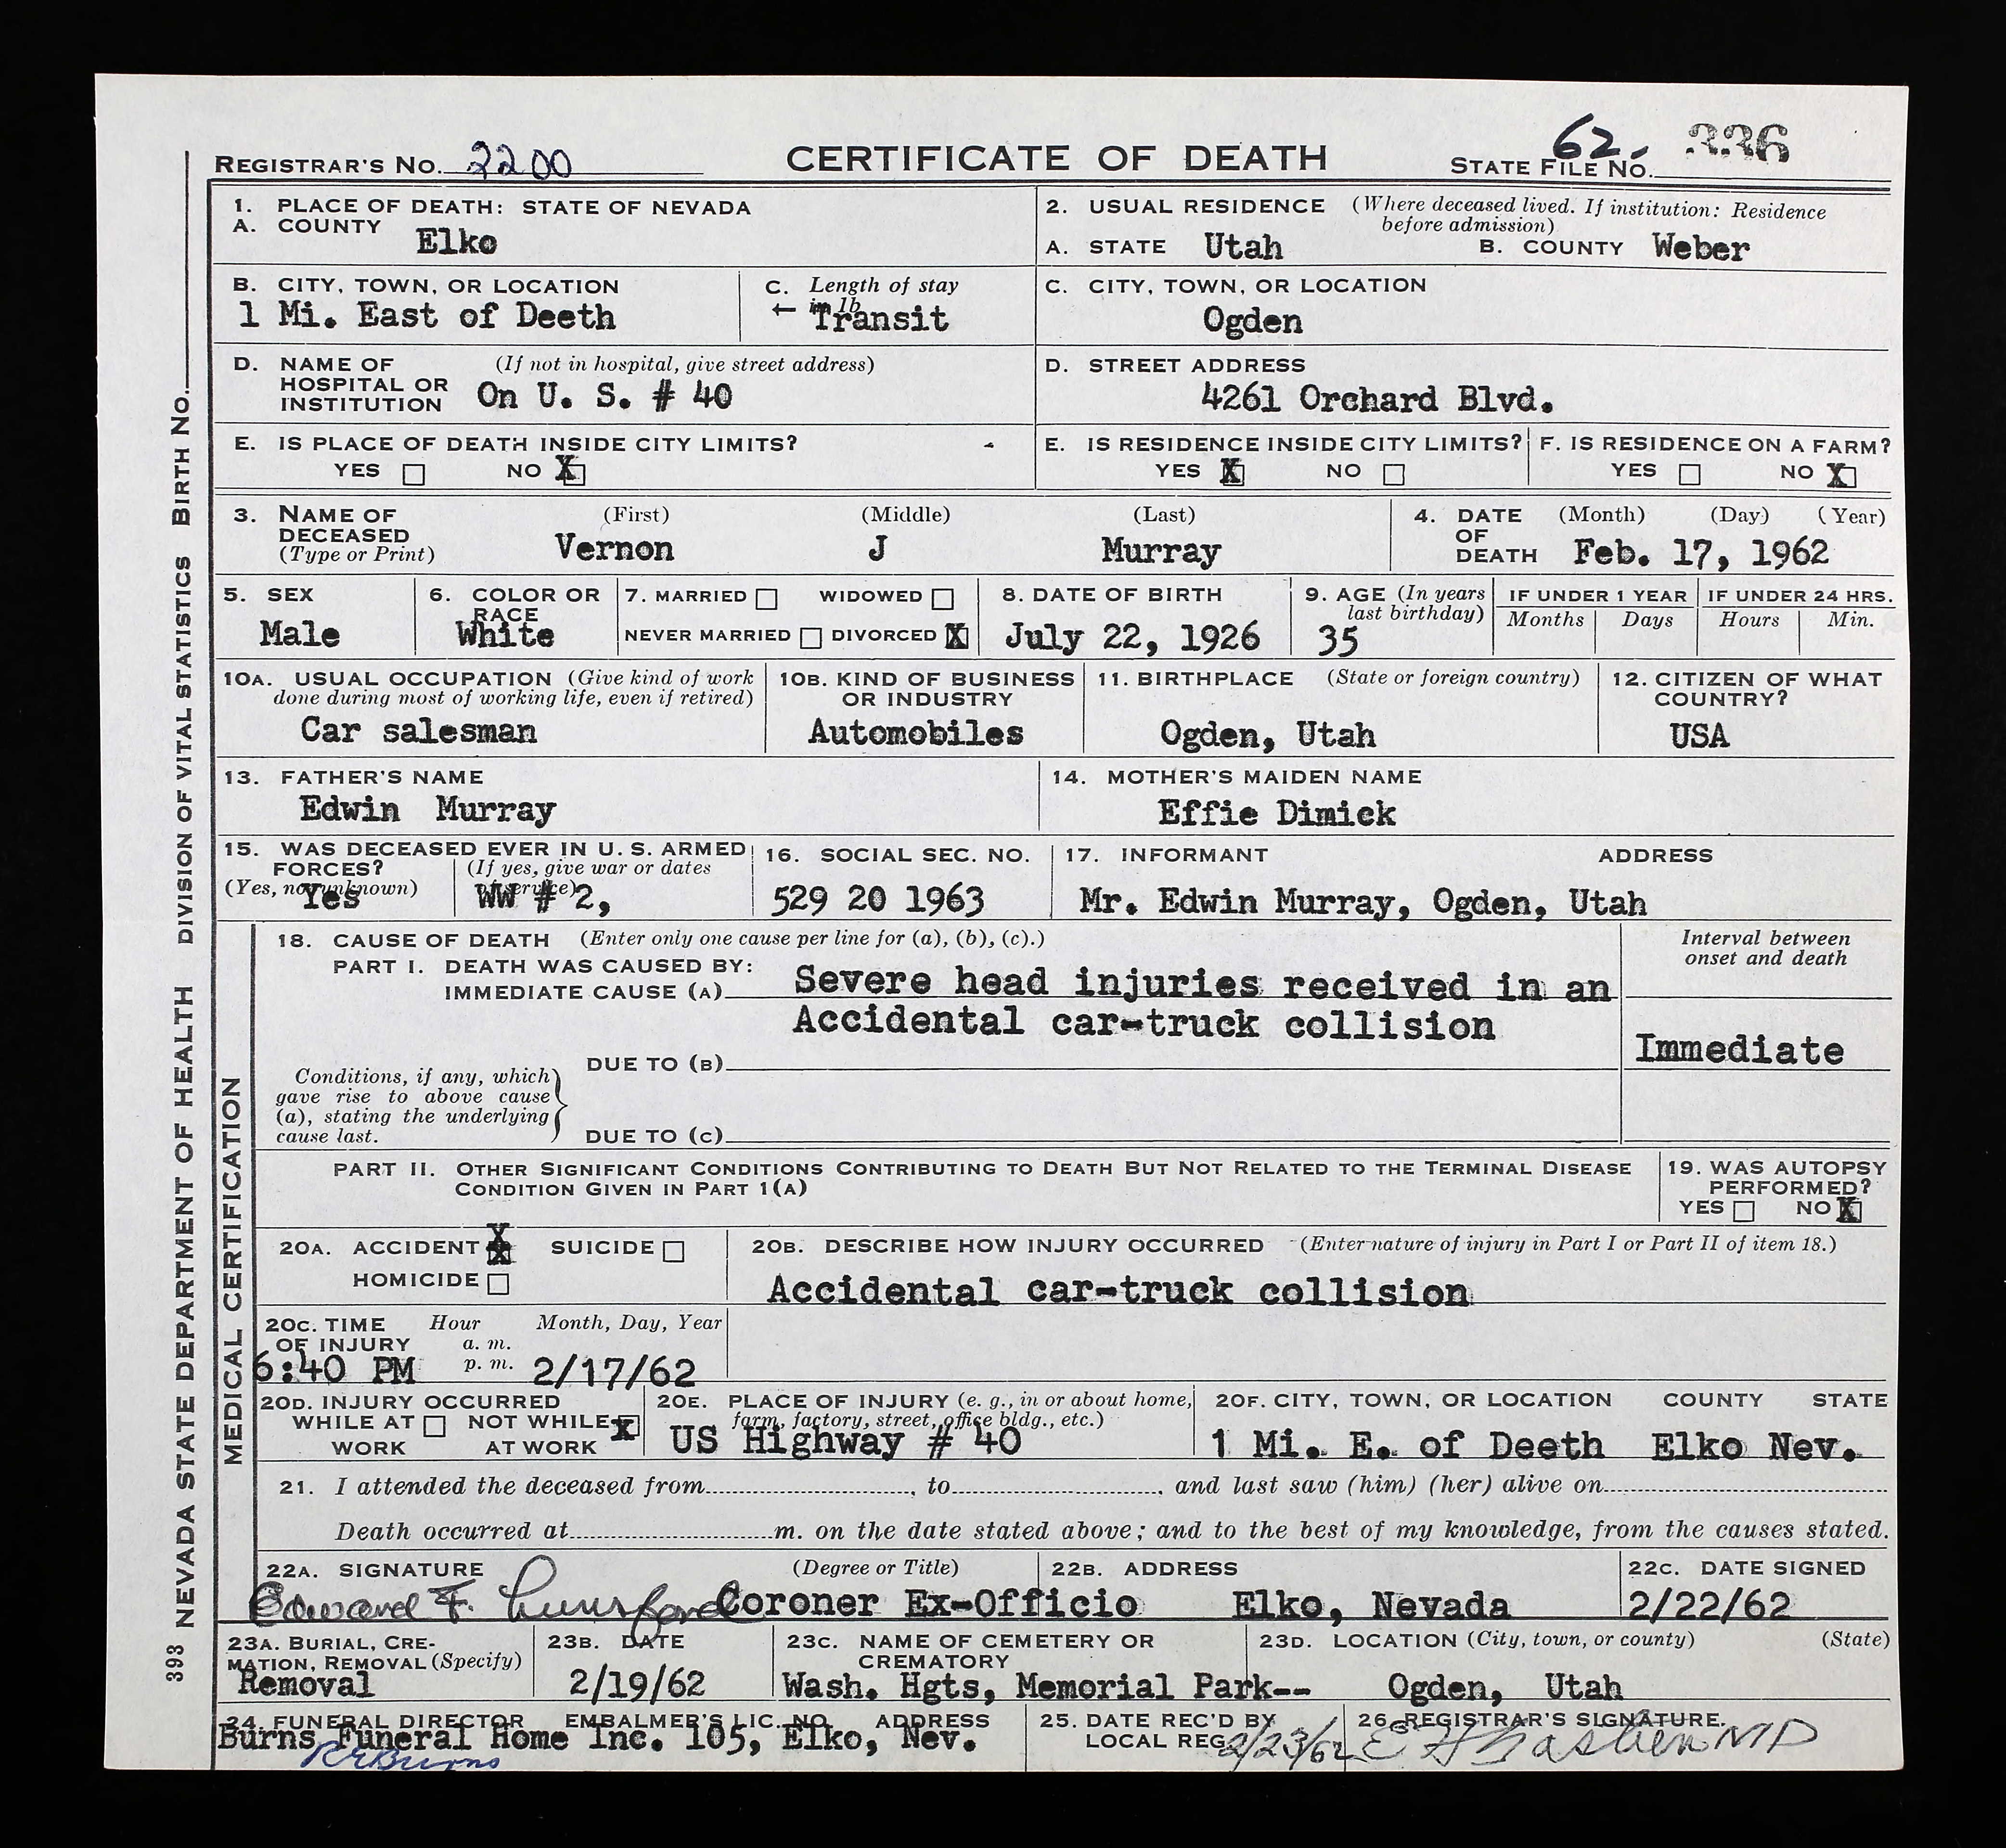 REGISTRAR'S NO. 2200 CERTIFICATE OF DEATH STATE FILE NO. 62- 336
1. PLACE OF DEATH: STATE OF NEVADA
A. COUNTY Elko
2. USUAL RESIDENCE (Where deceased lived. If institution: Residence before admission)
A. STATE Utah B. COUNTY Weber
B. CITY, TOWN, OR LOCATION
1 Mi. East of Deeth
C. Length of stay in 1b
← Transit
C. CITY, TOWN, OR LOCATION
Ogden
D. NAME OF HOSPITAL OR INSTITUTION (If not in hospital, give street address)
On U. S. # 40
D. STREET ADDRESS
4261 Orchard Blvd.
E. IS PLACE OF DEATH INSIDE CITY LIMITS?
YES NO X
E. IS RESIDENCE INSIDE CITY LIMITS?
YES X NO
F. IS RESIDENCE ON A FARM?
YES NO X
3. NAME OF DECEASED (Type or Print)
(First) (Middle) (Last)
Vernon J Murray
4. DATE OF DEATH (Month) (Day) (Year)
Feb. 17, 1962
5. SEX
Male
6. COLOR OR RACE
White
7. MARRIED WIDOWED
NEVER MARRIED DIVORCED X
8. DATE OF BIRTH
July 22, 1926
9. AGE (In years last birthday)
35
IF UNDER 1 YEAR
Months Days
IF UNDER 24 HRS.
Hours Min.
10A. USUAL OCCUPATION (Give kind of work done during most of working life, even if retired)
Car salesman
10B. KIND OF BUSINESS OR INDUSTRY
Automobiles
11. BIRTHPLACE (State or foreign country)
Ogden, Utah
12. CITIZEN OF WHAT COUNTRY?
USA
13. FATHER'S NAME
Edwin Murray
14. MOTHER'S MAIDEN NAME
Effie Dimick
15. WAS DECEASED EVER IN U. S. ARMED FORCES?
(Yes, no, unknown) (If yes, give war or dates of service)
Yes WW # 2,
16. SOCIAL SEC. NO.
529 20 1963
17. INFORMANT ADDRESS
Mr. Edwin Murray, Ogden, Utah
18. CAUSE OF DEATH (Enter only one cause per line for (a), (b), (c).)
PART I. DEATH WAS CAUSED BY:
IMMEDIATE CAUSE (A) Severe head injuries received in an
Accidental car-truck collision
Interval between onset and death
Immediate
DUE TO (B)
Conditions, if any, which gave rise to above cause (a), stating the underlying cause last.
DUE TO (C)
PART II. OTHER SIGNIFICANT CONDITIONS CONTRIBUTING TO DEATH BUT NOT RELATED TO THE TERMINAL DISEASE
CONDITION GIVEN IN PART 1(A)
19. WAS AUTOPSY PERFORMED?
YES NO X
20A. ACCIDENT X SUICIDE
HOMICIDE
20B. DESCRIBE HOW INJURY OCCURRED (Enter nature of injury in Part I or Part II of item 18.)
Accidental car-truck collision
20C. TIME OF INJURY Hour a. m. p. m. Month, Day, Year
6:40 PM 2/17/62
20D. INJURY OCCURRED
WHILE AT WORK NOT WHILE AT WORK X
20E. PLACE OF INJURY (e. g., in or about home, farm, factory, street, office bldg., etc.)
US Highway # 40
20F. CITY, TOWN, OR LOCATION COUNTY STATE
1 Mi. E. of Deeth Elko Nev.
21. I attended the deceased from , to , and last saw (him) (her) alive on
Death occurred at m. on the date stated above; and to the best of my knowledge, from the causes stated.
22A. SIGNATURE (Degree or Title)
Edward F. Lunsford Coroner Ex-Officio
22B. ADDRESS
Elko, Nevada
22C. DATE SIGNED
2/22/62
23A. BURIAL, CREMATION, REMOVAL (Specify)
Removal
23B. DATE
2/19/62
23C. NAME OF CEMETERY OR CREMATORY
Wash. Hgts, Memorial Park--
23D. LOCATION (City, town, or county) (State)
Ogden, Utah
24. FUNERAL DIRECTOR EMBALMER'S LIC. NO. ADDRESS
Burns Funeral Home Inc. 105, Elko, Nev.
RE Burns
25. DATE REC'D BY LOCAL REG.
2/23/62
26. REGISTRAR'S SIGNATURE.
MD
MEDICAL CERTIFICATION
393 NEVADA STATE DEPARTMENT OF HEALTH DIVISION OF VITAL STATISTICS BIRTH NO.